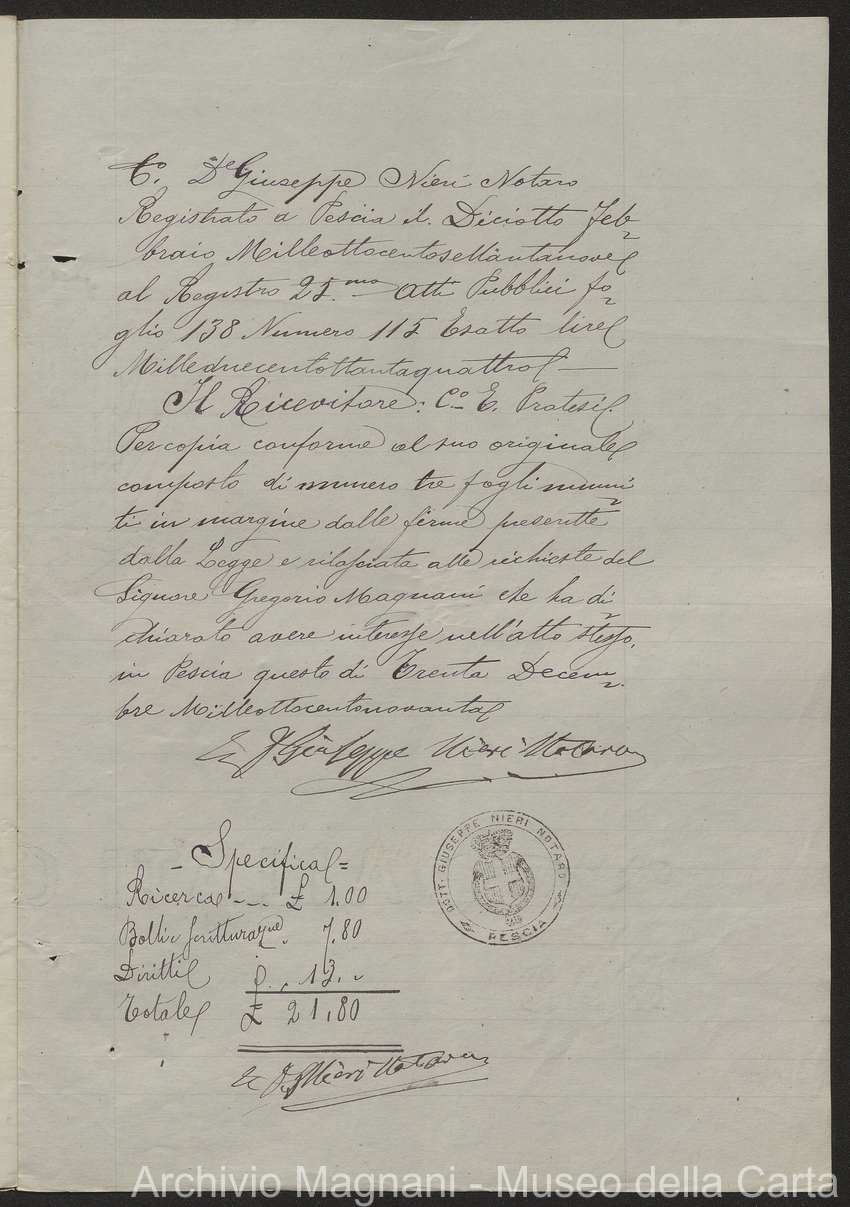 C.º Dr Giuseppe Nieri Notaro
Registrato a Pescia il Diciotto Feb-
braio Milleottocentosettantanove
al Registro 25.mo Atti Pubblici fo-
glio 138 Numero 115 Esatto lire
Milleduecentottantaquattro
Il Ricevitore: C.º E. Pratesi.
Per copia conforme al suo originale
composto di numero tre fogli muni-
ti in margine delle firme prescritte
dalla Legge e rilasciata alle richieste del
Signore Gregorio Magnani che ha di-
chiarato avere interesse nell'atto stesso,
in Pescia questo dì Trenta Decem-
bre Milleottocentonovanta
Giuseppe Nieri Notaro
DOTT. GIUSEPPE NIERI NOTARO
PESCIA
- Specifica =
Ricerca - - . £ 1.00
Bolli e scritturazne . 7.80
Diritti 13. -
Totale £ 21,80
Nieri Notaro
Archivio Magnani - Museo della Carta